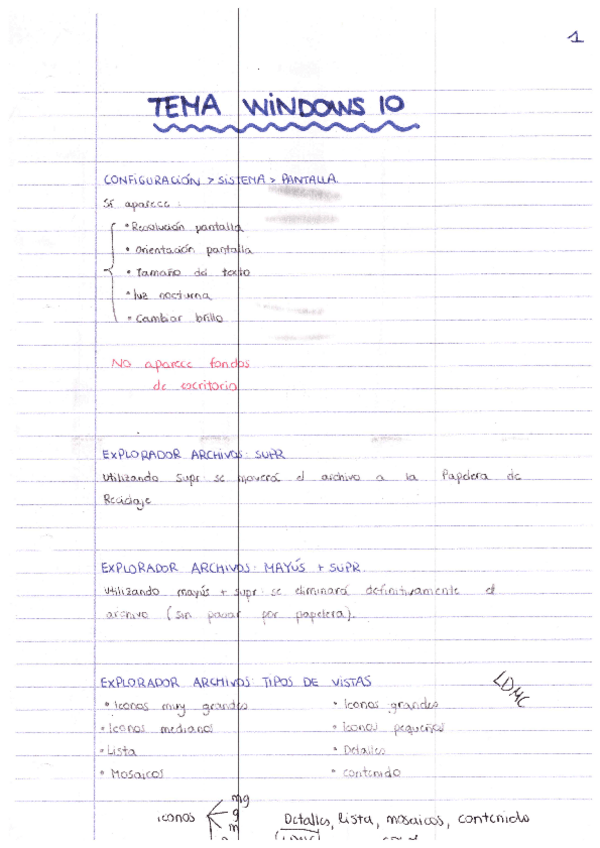 1
TEMA WINDOWS 10
CONFIGURACIÓN > SISTEMA > PANTALLA
Sí aparece:
• Resolución pantalla
• Orientación pantalla
• Tamaño del texto
• luz nocturna
• Cambiar brillo
No aparece fondos
de escritorio
EXPLORADOR ARCHIVOS: SUPR
Utilizando Supr se moverá el archivo a la Papelera de
Reciclaje
EXPLORADOR ARCHIVOS: MAYÚS + SUPR
Utilizando mayús + supr se eliminará definitivamente el
archivo (sin pasar por papelera).
EXPLORADOR ARCHIVOS: TIPOS DE VISTAS
LDMC
• Iconos muy grandes • Iconos grandes
• Iconos medianos • Iconos pequeños
• Lista • Detalles
• Mosaicos • Contenido
mg
iconos g Detalles, lista, mosaicos, contenido
m